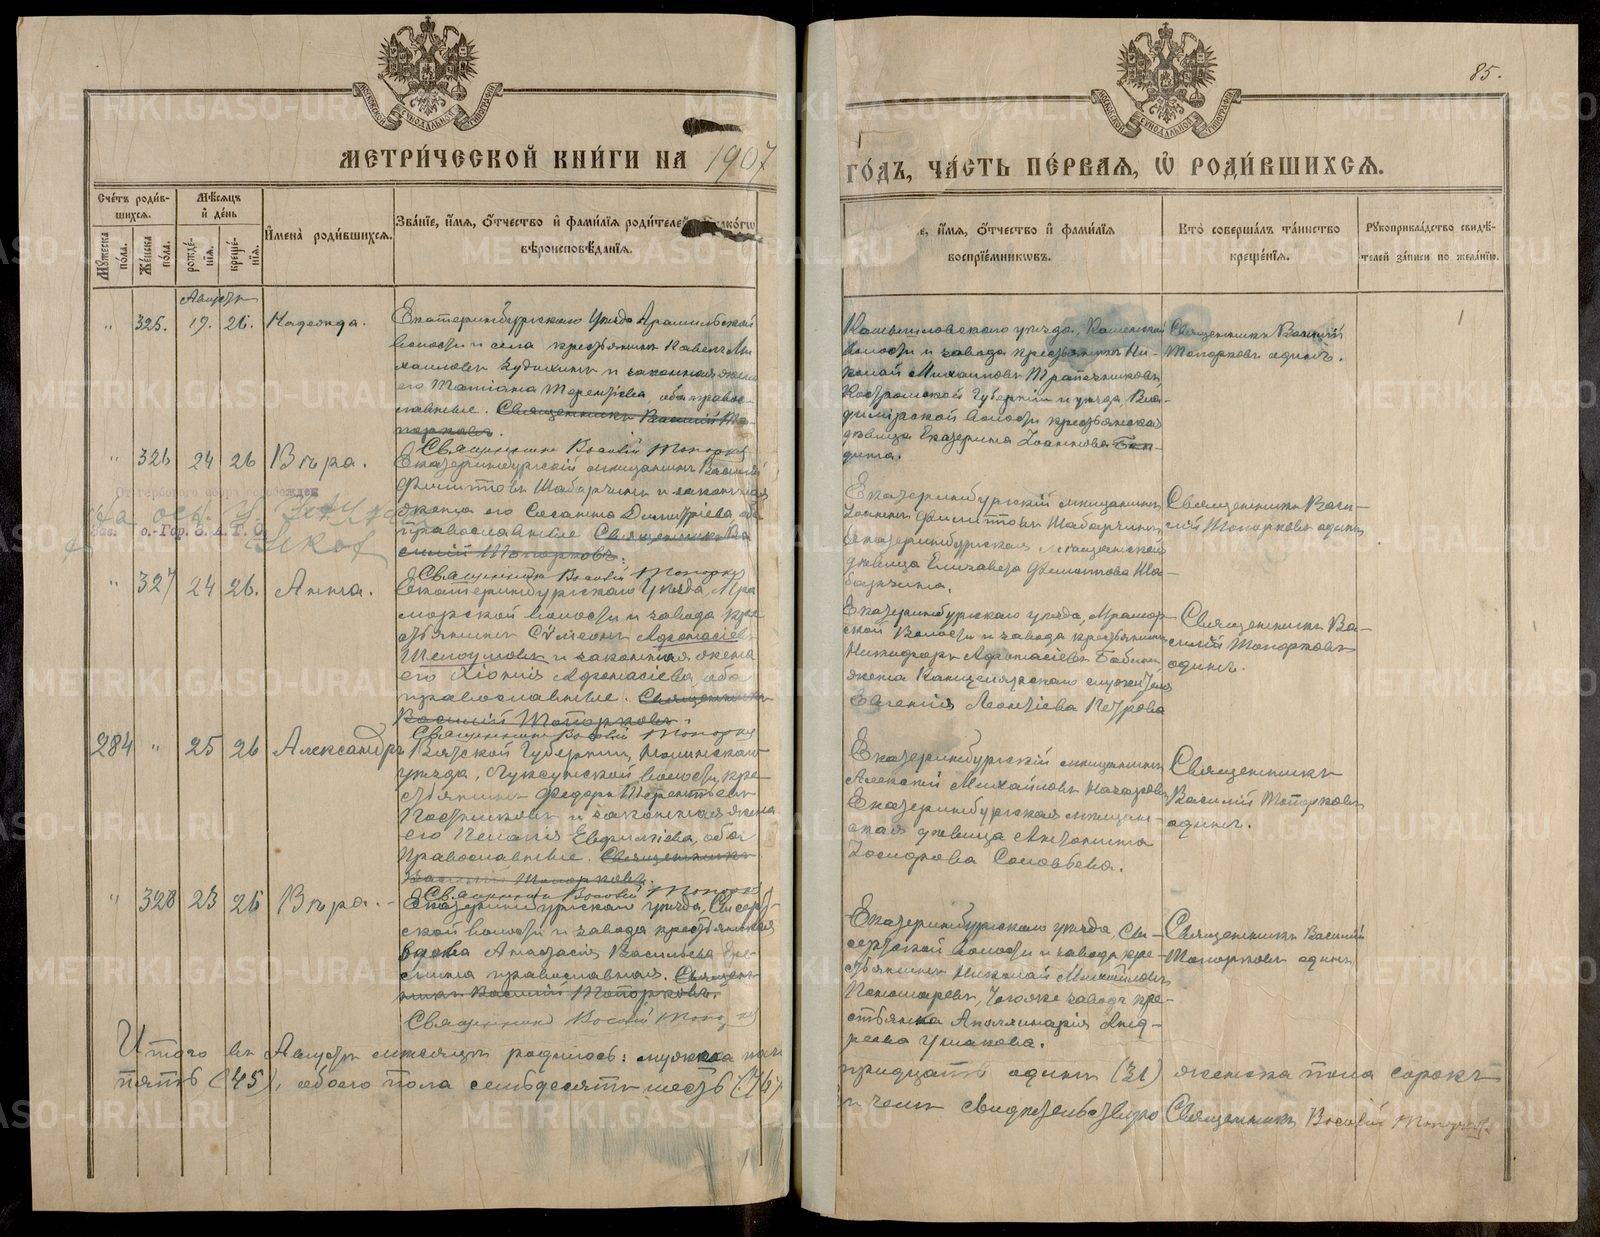 85.
МЕТРИ́ЧЕСКОЙ КНИ́ГИ НА 1907
ГО́ДЪ, ЧА́СТЬ ПЕ́РВАЯ, Ѿ РОДИ́ВШИХСЯ.
Сче́тъ роди́в-
шихся.
Мѣ́сяцъ
и́ де́нь
Мꙋ́жеска по́ла.
Же́нска по́ла.
рожде́-
нїя.
креще́-
нїя.
И҆мена̀ роди́вшихся.
Зва́нїе, и҆́мя, о҆́тчество и҆ фами́лїя роди́телей
вѣроисповѣ́данїя.
е, и҆́мя, о҆́тчество и҆ фами́лїя
воспрїе́мникωвъ.
Кто̀ соверша́лъ та́инство
креще́нїя.
Рꙋкоприкла́дство свидѣ́-
телей за́писи по жела́нїю.
Августъ
" 325. 19. 26. Надежда.
Екатеринбургскаго уѣзда Арамильской
волости и села крестьянинъ Павелъ Ми-
хаиловъ и законная жена
его Татіана Терентіева, оба право-
славные. Священникъ Василій То-
порковъ.
Священникъ Василій Топорков
Камышловскаго уѣзда, Каменской
волости и завода крестьянинъ Ни-
колай Михаиловъ Трапезниковъ
Костромской губерніи и уѣзда Вла-
димірской волости крестьянская
дѣвица Екатерина Іоаннова
дина.
Священникъ Василій
Топорковъ одинъ.
" 326 24 26 Вѣра.
Екатеринбургскій мѣщанинъ Василій
Филипповъ Шабарчинъ и законная
жена его Сосанна Димитріева, оба
православные Священникъ Ва
силій Топорковъ.
Священникъ Василій Топорков
Екатеринбургскій мѣщанинъ
Іоаннъ Филипповъ Шабарчинъ,
Екатеринбургская мѣщанская
дѣвица Елизавета Филиппова Ша-
барчина.
Священникъ Васи-
лій Топорковъ одинъ
От гербового сбора освобожден
Зав. о.-Гор. З. А. Г. С.
" 327 24 26. Анна.
Екатеринбургскаго уѣзда, Мра
морской волости и завода кре
стьянинъ Сѵмеонъ Афонасіевъ
Шелоумовъ и законная жена
его Хіонія Афонасіева, оба
православные. Священникъ
Василій Топорковъ.
Священникъ Василій Топорков
Екатеринбургскаго уѣзда, Мрамор-
ской волости и завода крестьянинъ
Никифоръ Афонасіевъ
жена Канцелярскаго служителя
Евгенія Леонтіева Петрова
Священникъ Ва-
силій Топорковъ
одинъ.
284 " 25 26 Александръ
Вятской губерніи,
уѣзда, волости, кре-
стьянинъ Федоръ Терентьевъ
Постниковъ и законная жена
его Пелагія Евфиміева, оба
православные. Священникъ
Василій Топорковъ.
Священникъ Василій Топорков
Екатеринбургскій мѣщанинъ
Алексій Михайловъ Назаровъ
Екатеринбургская мѣщан-
ская дѣвица Антонина
Соловьева.
Священникъ
Василій Топорковъ
одинъ.
" 328 23 26 Вѣра.
Екатеринбургскаго уѣзда, Сысерт-
ской волости и завода крестьянская
вдова Анастасія Васильева
православная. Священ-
никъ Василій Топорковъ.
Священникъ Василій Топорков
Екатеринбургскаго уѣзда Сы-
сертской волости и завода кре-
стьянинъ Николай Михайловъ
Пономаревъ, тогоже завода кре-
стьянка Аполлинарія Анд-
реева Ушакова.
Священникъ Василій
Топорковъ одинъ
Итого въ Августѣ мѣсяцѣ родилось: мужска пола
тридцать одинъ (31) женска пола сорокъ
пять (45), обоего пола семьдесятъ шесть (76)
и чемъ свидѣтельствую Священникъ Василій Топорков.